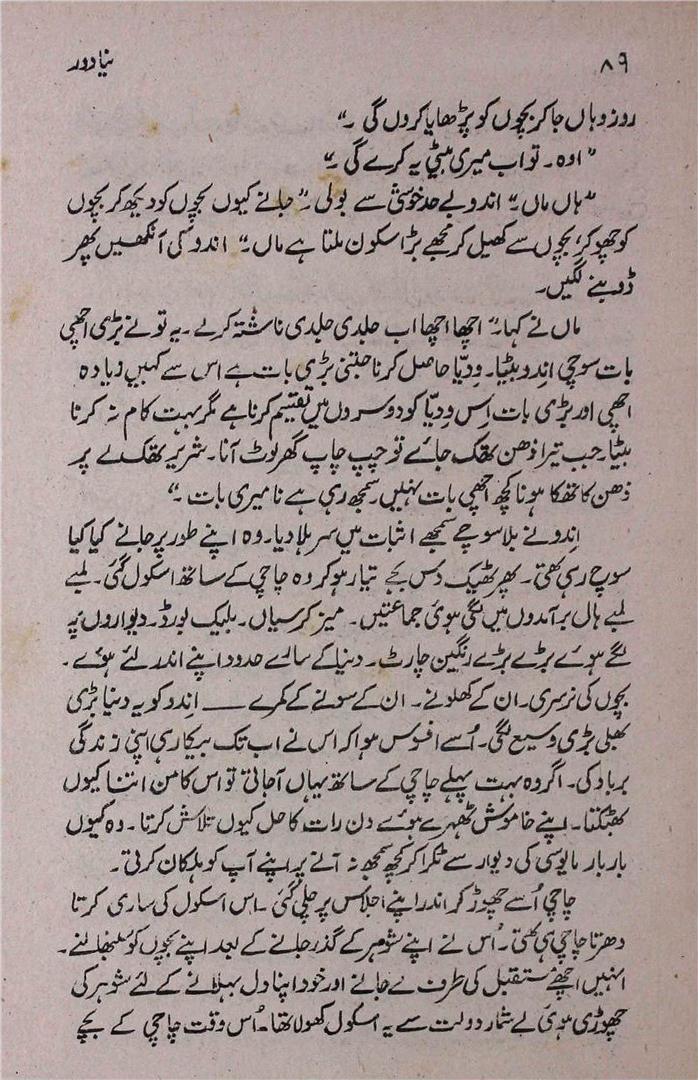 ۸۹ نیا دور
روز وہاں جا کر بچوں کو پڑھایا کروں گی ۔"
"اوہ ۔ تو اب میری بیٹی یہ کرے گی ۔"
"ہاں ماں ۔" اندو بے حد خوشی سے بولی ۔" جانے کیوں بچوں کو دیکھ کر بچوں
کو چھو کر، بچوں سے کھیل کر مجھے بڑا سکون ملتا ہے ماں ۔" اندو کی آنکھیں پھر
ڈوبنے لگیں۔
ماں نے کہا ۔" اچھا اچھا اب جلدی جلدی ناشتہ کرلے ۔ یہ تو نے بڑی اچھی
بات سوچی اِندو بیٹیا۔ وِدیّا حاصل کرنا جتنی بڑی بات ہے اس سے کہیں زیادہ
اچھی اور بڑی بات اِس وِدیّا کو دوسروں میں تقسیم کرنا ہے مگر بہت کام نہ کرنا
بیٹیا۔ جب تیرا ذھن تھک جائے تو چپ چاپ گھر لوٹ آنا۔ شریر تھکے پر
ذھن کا تھکا ہونا کچھ اچھی بات نہیں۔ سمجھ رہی ہے نا میری بات ۔"
اِندو نے بلا سوچے سمجھے اثبات میں سر ہلا دیا۔ وہ اپنے طور پر جانے کیا کیا
سوچ رہی تھی۔ پھر ٹھیک دس بجے تیار ہو کر وہ چاچی کے ساتھ اسکول گئی۔ لمبے
لمبے ہال برآمدوں میں لگی ہوئی جماعتیں۔ میز کرسیاں۔ بلیک بورڈ۔ دیواروں پہ
لگے ہوئے بڑے بڑے رنگین چارٹ۔ دنیا کے سارے حدود اپنے اندر لئے ہوئے۔
بچوں کی نرسری۔ ان کے کھلونے۔ ان کے سونے کے کمرے ــــ اندو کو یہ دنیا بڑی
بھلی بڑی وسیع لگی۔ اُسے افسوس ہوا کہ اس نے اب تک بیکار ہی اپنی زندگی
برباد کی۔ اگر وہ بہت پہلے چاچی کے ساتھ یہاں آ جاتی تو اس کا من اتنا کیوں
بھٹکتا۔ اپنے خاموش ٹھہرے ہوئے دن رات کا حل کیوں تلاش کرتا۔ وہ کیوں
بار بار مایوسی کی دیوار سے ٹکرا کر کچھ سمجھ نہ آنے پر اپنے آپ کو ہلکان کرتی۔
چاچی اُسے چھوڑ کر اندر اپنے اجلاس پر چلی گئی ۔ اس اسکول کی ساری کرتا
دھرتا چاچی ہی تھی۔ اُس نے اپنے شوہر کے گذر جانے کے بعد اپنے بچوں کو سنبھالنے۔
انہیں اچھے مستقبل کی طرف لے جانے اور خود اپنا دل بہلانے کے لئے شوہر کی
چھوڑی ہوئی بے شمار دولت سے یہ اسکول کھولا تھا۔ اُس وقت چاچی کے بچے